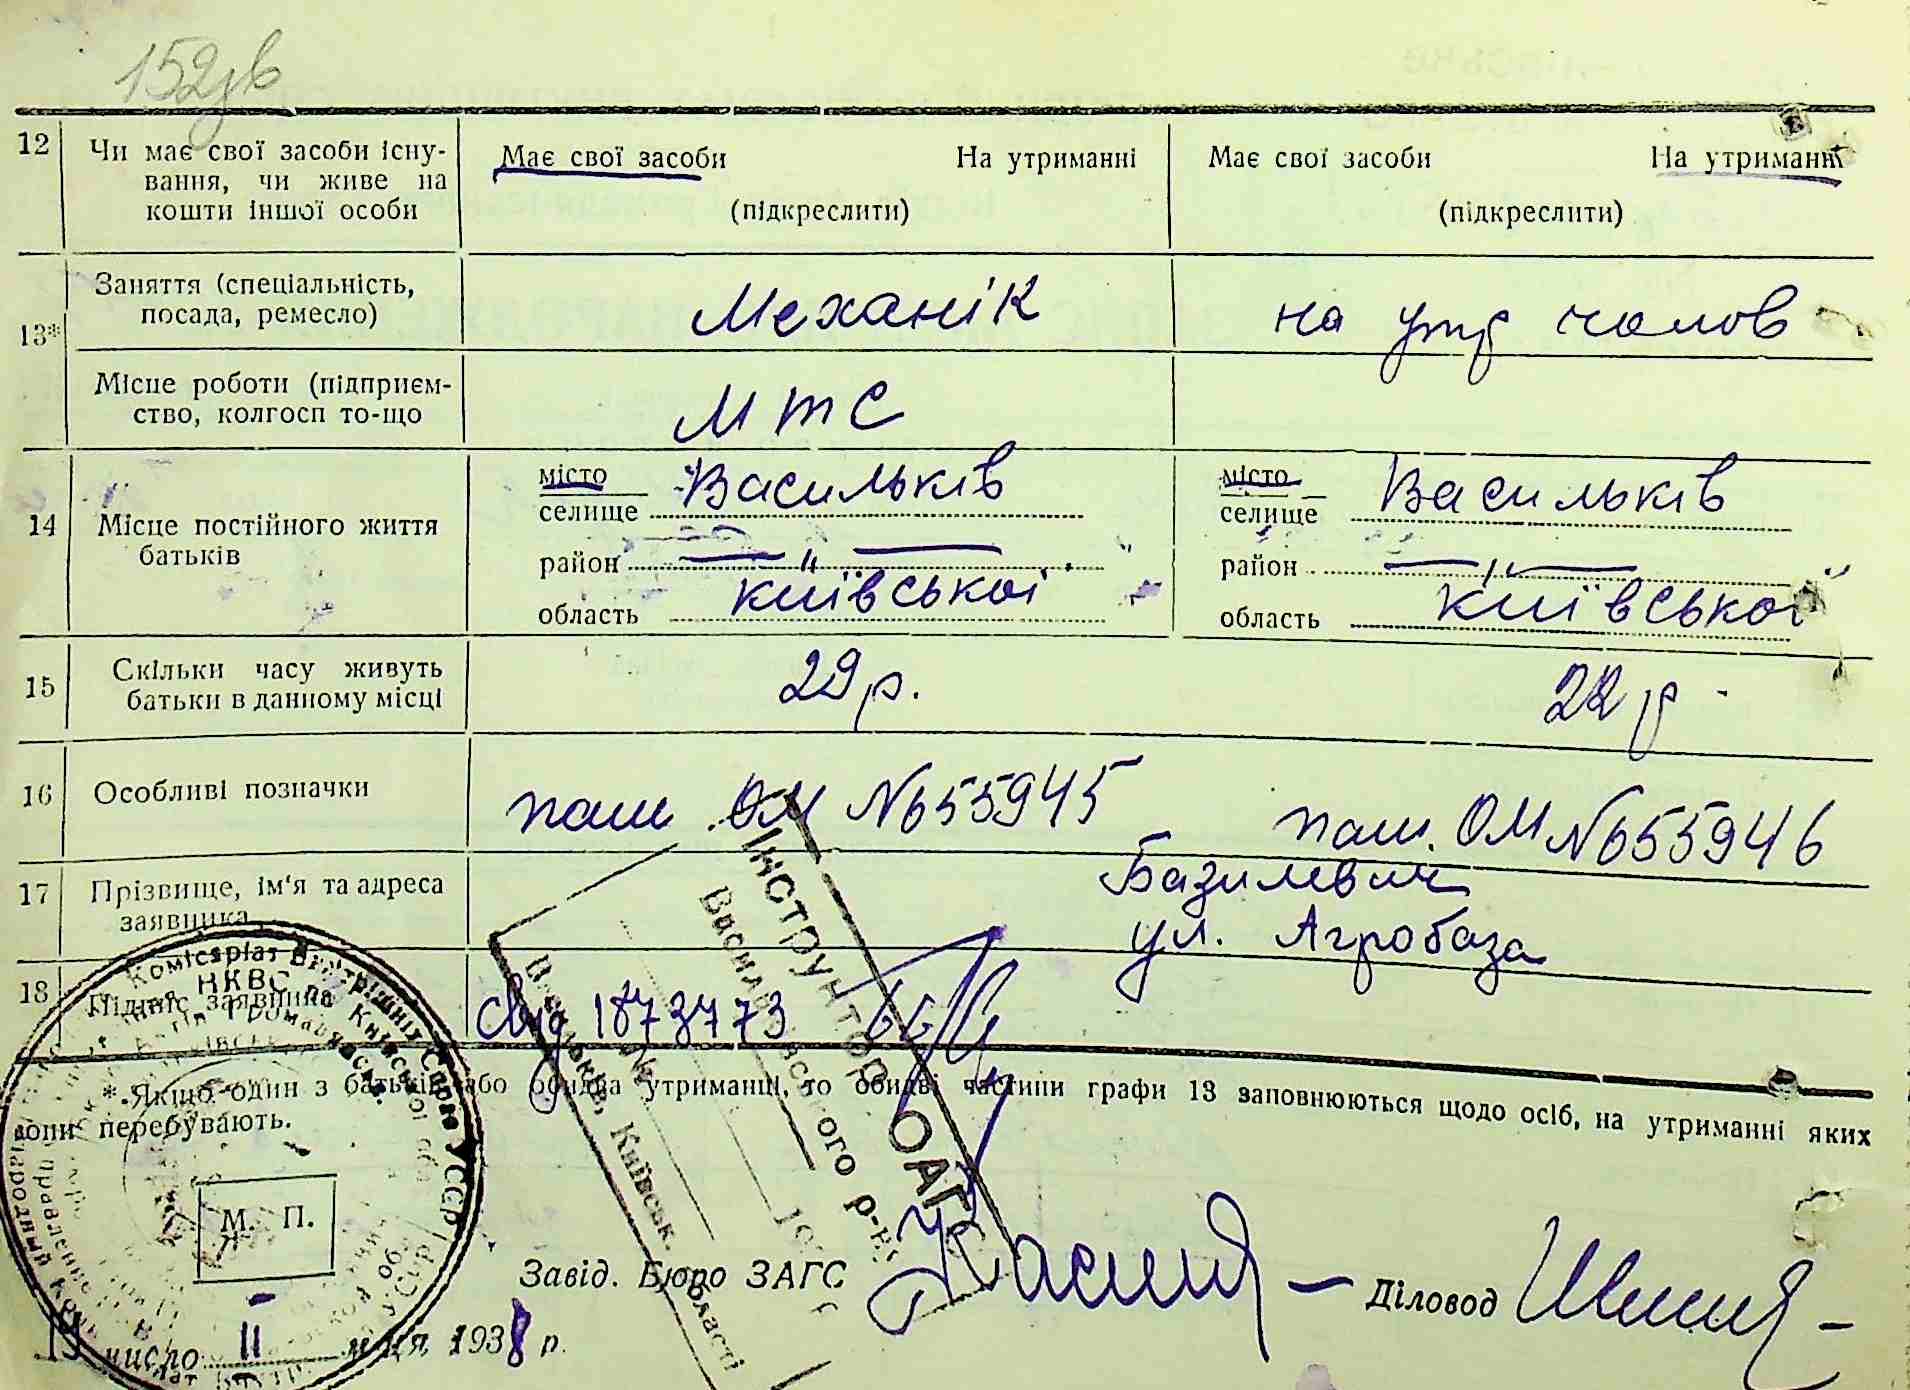 152
12 Чи має свої засоби існу-
вання, чи живе на
кошти іншої особи
Має свої засоби На утриманні
(підкреслити)
Має свої засоби На утриманні
(підкреслити)
13*
Заняття (спеціальність,
посада, ремесло)
Механік
на утр чолов
Місце роботи (підприєм-
ство, колгосп то-що
МТС
14 Місце постійного життя
батьків
місто
селище Васильків
район
область київської
місто
селище Васильків
район
область київської
15 Скільки часу живуть
батьки в данному місці
29 р.
22 р
16 Особливі позначки
паш ОМ №655945
паш. ОМ №655946
17 Прізвище, ім'я та адреса
заявника
Базилевич
ул. Агробаза
18 Підпис заявника
свид 1873773
* Якщо один з батьків або обидва утриманці, то обидві частини графи 13 заповнюються щодо осіб, на утриманні яких
вони перебувають.
М. П.
Завід. Бюро ЗАГС
Діловод
число 11 м-ця 1938 р.
Інструктор ОАГС
Васильківського р-ну
Київськ. області
НКВС по Київській